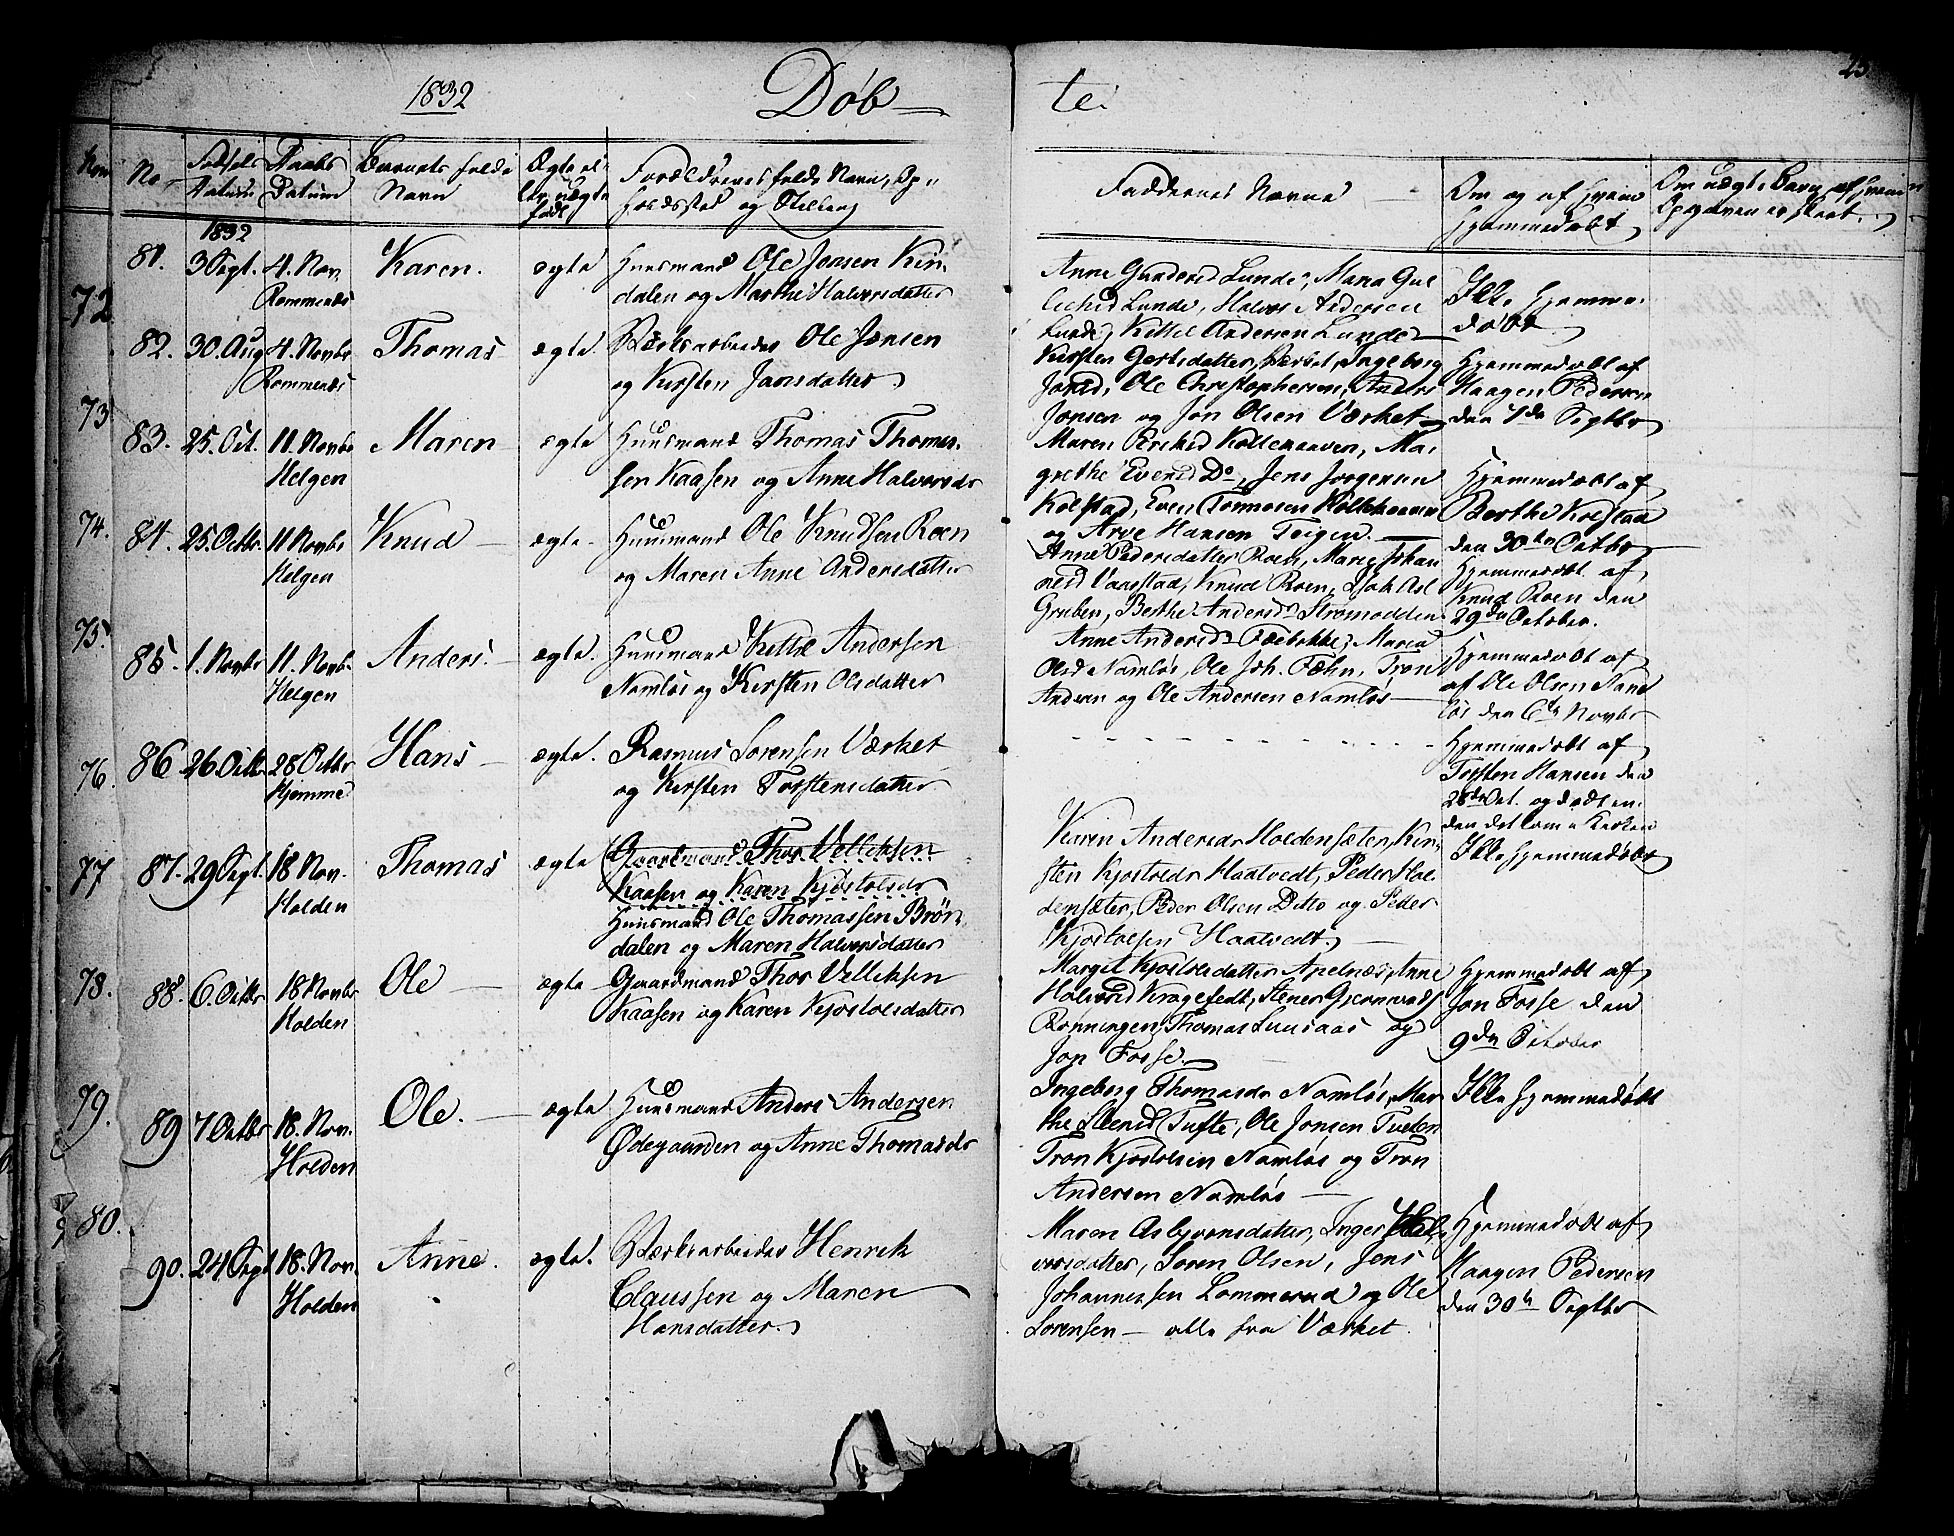 1832
Døb-
te.
No
Fødsels Datum
Daabs Datum
Barnets fulde Navn
Ægte eller uægte født
Forældrenes fulde Navn, Opholdssted og Stilling
Faddernes Navne
Om og af hvem hjemmedøbt
Om uægte Barn, af hvem Opgaven er skeet.
1832
72
81. 3 Sept. 4. Nov. Karen. ægte Huusmand Ole Jensen Kin-
Rommenæs dalen og Marthe Halvorsdatter
Anne Lunde, Maria
Lunde, Halvor Andersen
Lunde, Kittil Andersen Lunde
Ikke hjemme-
døbt
73
82. 30. Aug 4. Novbr Thomas ægte. Værksarbeider Ole Jensen
Rommenæs og Kirsten Jansdatter
Kirsten Gertsdatter, Ingeborg
Ole Christophersen, Anders
Jonsen og Jon Olsen Værket
Hjemmedøbt af
Haagen Pedersen
den 7de Septbr
83. 25. Oct. 11. Novbr Maren ægte Huusmand Thomas Thomes-
Helgen sen Kaasen og Anne Halvorsdr
Maren Kolkeraaven, Ma-
grethe Do, Jens Jørgensen
Kolstad, Even Tommesen
og Arve Hansen Teigen.
Hjemmedøbt af
Berthe Kolstad
den 30te Octbr
74.
84. 25. Octbr. 11 Novbr Knud ægte Huusmand Ole Knudsen Roen
Helgen og Maren Anne Andersdatter
Anne Pedersdatter Roen, Maria Johan-
Vaagstad, Knud Roen,
Gruben, Berthe Andersdr Strømodden
Hjemmedøbt af
Knud Roen den
29de October.
75.
85. 1. Novbr 11. Novbr. Anders. ægte. Huusmand Kittil Andersen
Helgen Namløs og Kirsten Olsdatter
Anne Andersdr Maria
Olsd Namløs, Ole Joh. Tron
Andersen og Ole Andersen Namløs
Hjemmedøbt af
af Ole Olsen Nam-
løs den 6te Novbr
76.
86 26 Octbr 28 Octbr Hans ægte. Rasmus Sørensen Værket
Hjemme og Kirsten Torstensdatter
Hjemmedøbt af
Torsten Hansen den
28de Oct. og død
den det kom i Kirken
77
87. 29 Sept. 18 Nov. Thomas ægte Gaardmand Thor Velliksen
Holden Kaasen og Karen Kjøstolsdr
Huusmand Ole Thomassen Brøn-
dalen og Maren Halvorsdatter
Karen Andersdr Holdensæter, Kir-
sten Kjostolsdr Haatvedt, Peder Hol-
densæter, Peder Olsen Ditto og Peder
Kjostolsen Haatvedt.
Ikke hjemmedøbt
78.
88. 6. Octbr 18 Novbr Ole ægte Gaardmand Thor Velliksen
Holden Kaasen og Karen Kjøstolsdatter
Margit Kjostolsdatter Apelnæs, Anne
Halvorsd Stener
Rønningen, Thomas Luusaas og
Jon Fosse.
Hjemmedøbt af
Jon Fosse den
9de October
79.
89 7 Octbr 18. Nov. Ole. ægte Huusmand Anders Andersen
Holden Ødegaarden og Anne Thomasdr
Ingeborg Thomasdr Namløs, Mar-
the Stenersd Tufte, Ole Jonsen Tufte
Tron Kjostolsen Namløs og Tron
Andersen Namløs
Ikke hjemmedøbt
80.
90. 24 Sept 18. Nov. Anne. ægte. Værksarbeider Henrik
Holden Claussen og Maren
Hansdatter.
Maren Asbjørnsdatter, Inger Hal-
vorsdatter, Søren Olsen, Jens
Johannessen Lommerud og Ole
Sørensen - alle fra Værket.
Hjemmedøbt af
Haagen Pedersen
den 30te Septbr